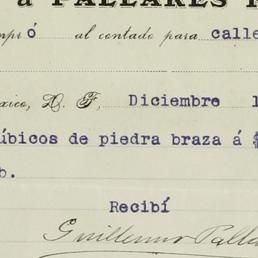 a PALLARES
mpró al contado para calle
México, D. F, Diciembre 1
úbicos de piedra braza á $
b.
Recibí
Guillermo Palla